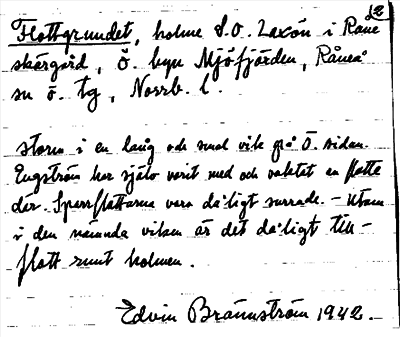 12
Flottgrundet, holme S.O. Laxön i Råne
skärgård, ö. byn Mjöfjärden, Råneå
sn ö. tg, Norrb. l.
storm i en lång och smal vik på Ö. sidan.
Engström har själv varit med och vaktat en flotte
där. Sparrflottarna voro dåligt surrade. - Utom
i den nämnda viken är det dåligt till-
flott runt holmen.
Edvin Brännström 1942.-